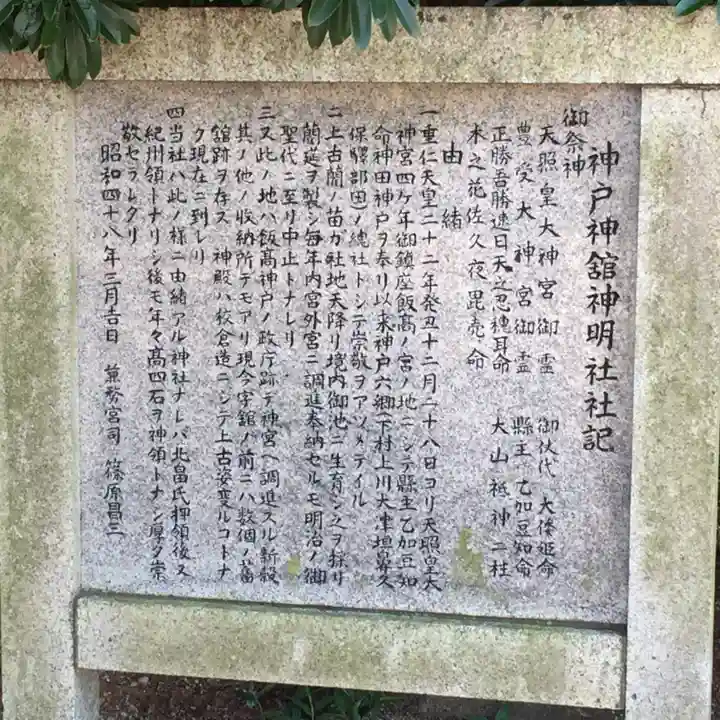 神戸神舘神明社社記
御祭神
天照皇大神宮御霊　御伏代　大倭姫命
豊受大神宮御霊　縣主　乙加豆知命
正勝吾勝速日天之忍穂耳命
木之花佐久夜毘売命　大山祗神二柱
由緒
一垂仁天皇二十二年癸丑十二月二十八日ヨリ天照皇大
神宮四ケ年御鎮座飯高ノ宮ノ地ニシテ縣主乙加豆知
命神田神戸ヲ奉リ以来神戸六郷(下村上川大津垣鼻久
保驛部田)ノ總社トシテ崇敬ヲアツメテイル
二上古蘭ノ苗ガ社地天降リ境内御池ニ生育シ之ヲ採リ
蘭莚ヲ製シ毎年内宮外宮ニ調進奉納セルモ明治ノ御
聖代ニ至リ中止トナレリ
三又此ノ地ハ飯高神戸ノ政庁跡デ神宮ヘ調進スル新穀
其ノ他ノ収納所デモアリ現今字舘ノ前ニハ数個ノ舊
舘跡ヲ存ス　神殿ハ校倉造ニシテ上古姿変ルコトナ
ク現在ニ到レリ
四当社ハ此ノ様ニ由緒アル神社ナレバ北畠氏押領後ス
紀州領トナリシ後モ年々高四石ヲ神領トナシ厚ク崇
敬セラレタリ
昭和四十八年三月吉日　兼務宮司　篠原昌三